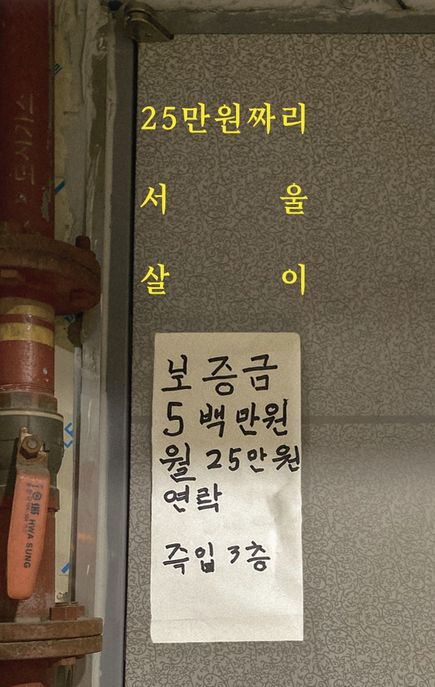 25만원짜리
서울
살이
보증금
5백만원
월 25만원
연락
즉입 3층
HWA SUNG